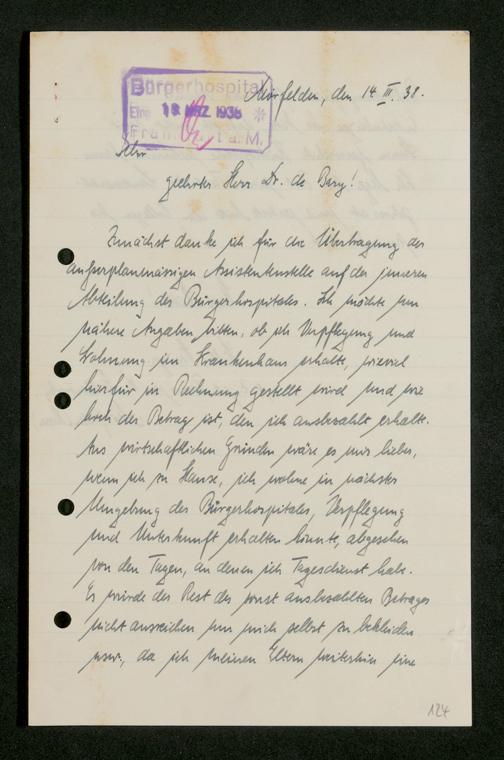 Bürgerhospital
Mörfelden, den 14. III. 38.
Eing. 18. MRZ. 1938 *
Frankfurt a. M.
Sehr
geehrter Herr Dr. de Bary!
Zunächst danke ich für die Übertragung der
außerplanmässigen Assistentenstelle auf der inneren
Abteilung des Bürgerhospitales. Ich möchte um
nähere Angaben bitten, ob ich Verpflegung und
Wohnung im Krankenhaus erhalte, wieviel
hierfür in Rechnung gestellt wird und wie
hoch der Betrag ist, den ich ausbezahlt erhalte.
Aus wirtschaftlichen Gründen wäre es mir lieber,
wenn ich zu Hause, ich wohne in nächster
Umgebung des Bürgerhospitales, Verpflegung
und Unterkunft erhalten könnte, abgesehen
von den Tagen, an denen ich Tagesdienst habe.
Es würde der Rest des sonst ausbezahlten Betrages
nicht ausreichen um mich selbst zu bekleiden
usw., da ich meinen Eltern weiterhin eine
124